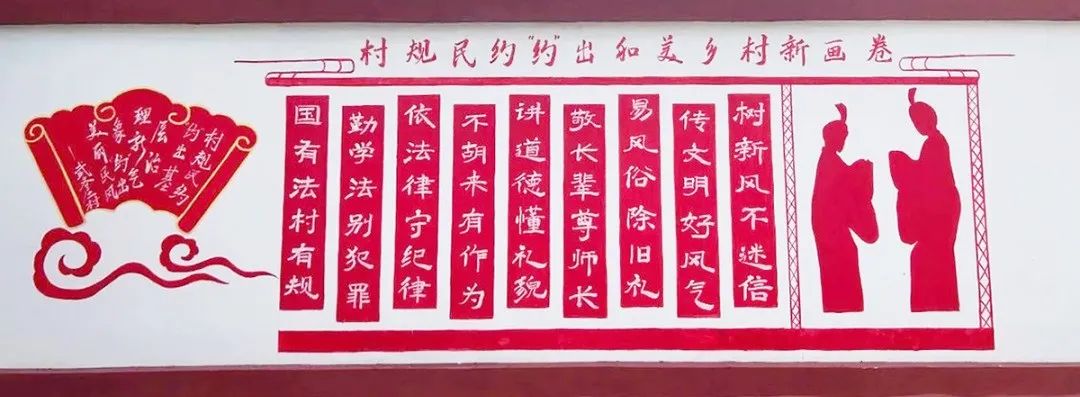 村规民约“约”出和美乡村新画卷
村规民约
“约”出基
层治
理新气
象“约”出
美丽民风
国有法村有规
勤学法别犯罪
依法律守纪律
不胡来有作为
讲道德懂礼貌
敬长辈尊师长
易风俗除旧礼
传文明好风气
树新风不迷信